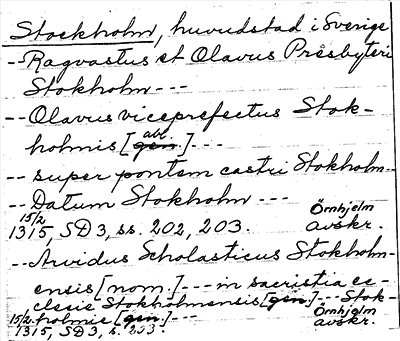 Stockholm, huvudstad i Sverige
-- Ragvastus et Olavus Presbyteri
Stokholm ---
-- Olavus viceprefectus Stok-
holmis [gen.] abl. ---
-- super pontem castri Stokholm --
-- Datum Stokholm ---
15/2 1315, SD 3, ss. 202, 203. Örnhjelm avskr.
-- Arvidus Scholasticus Stokholm-
ensis [nom.] --- in sacristia ec-
clesie Stokholmensis [gen.] --- Stok-
holmie [gen.] ---
15/2 1315, SD 3, s. 203. Örnhjelm avskr.